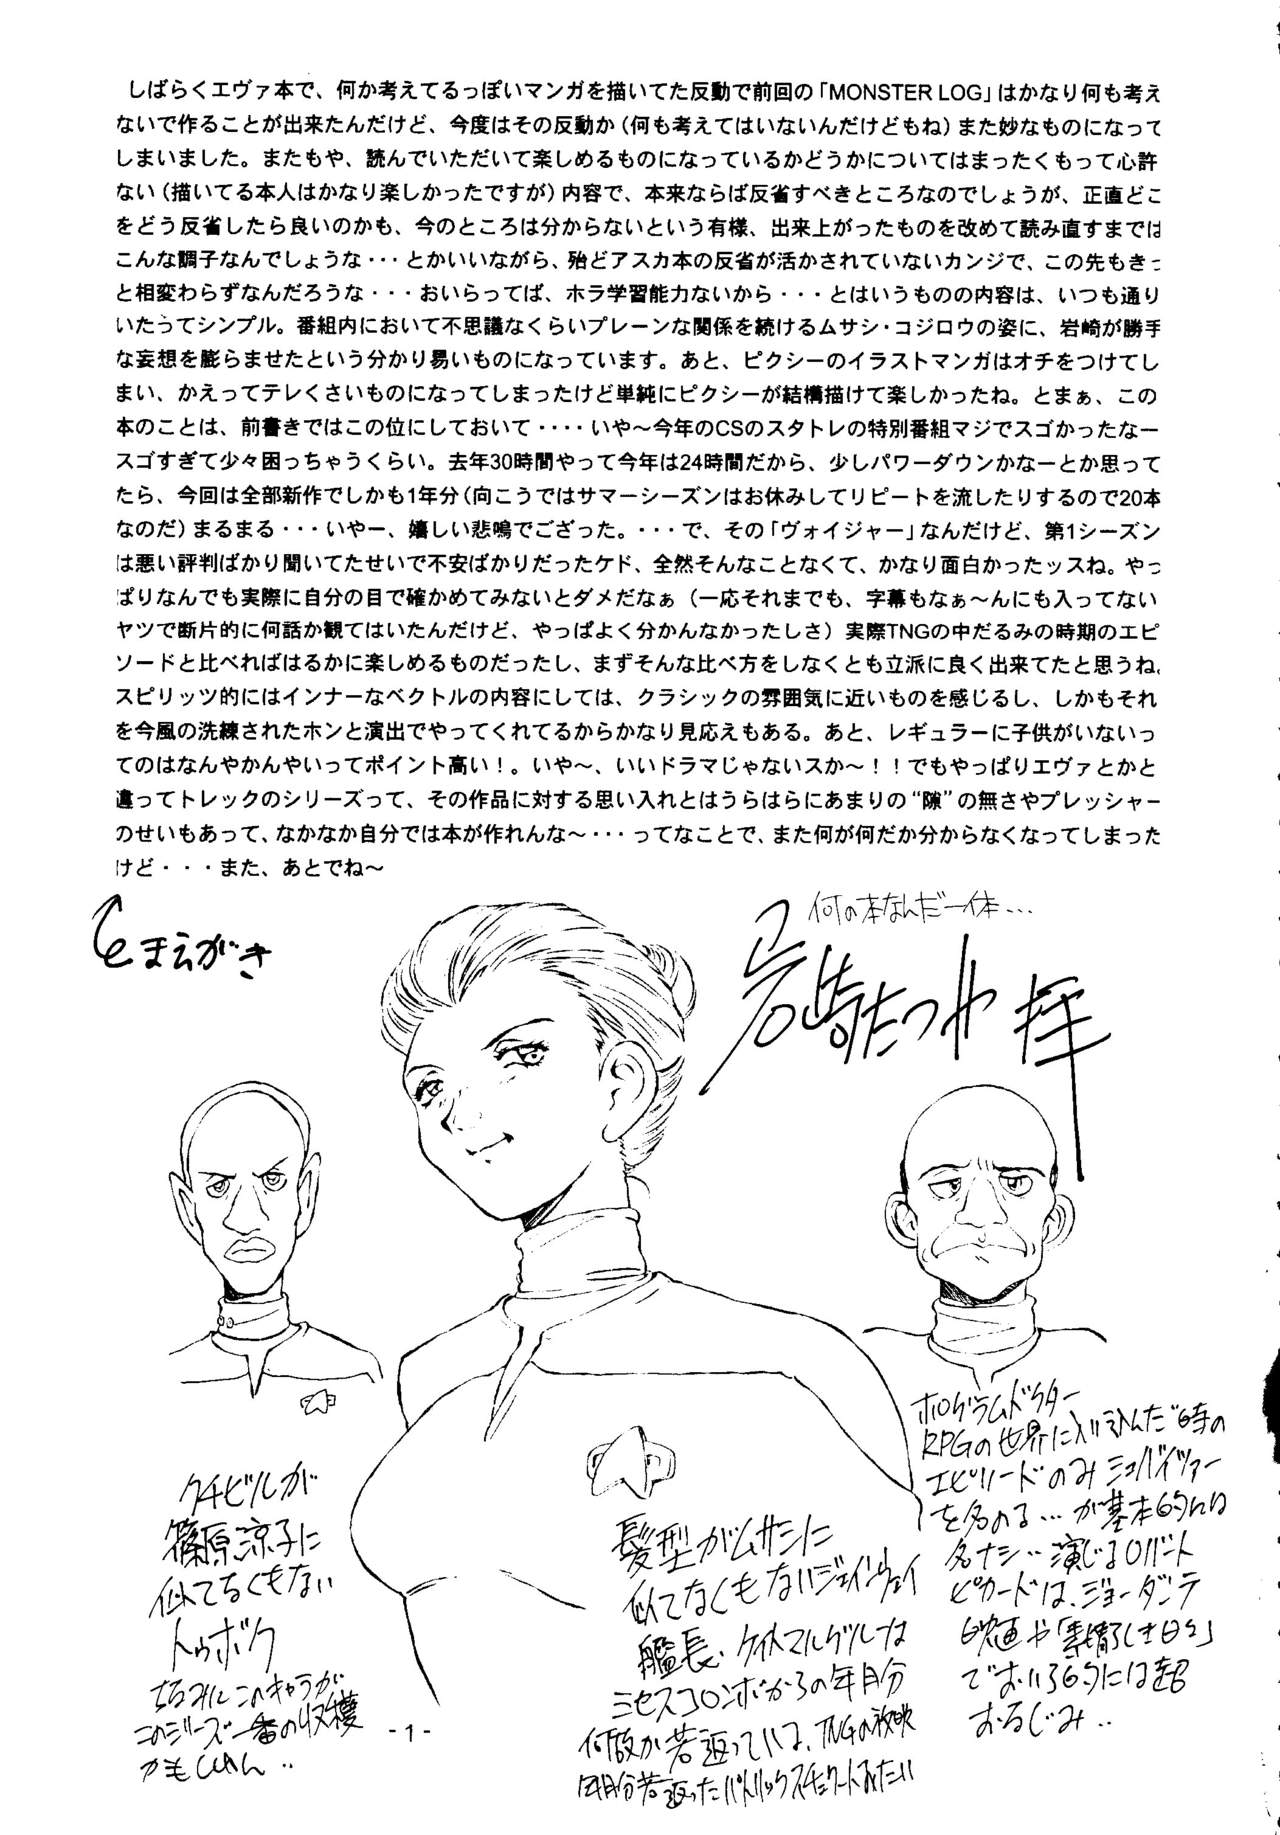 しばらくエヴァ本で、何か考えてるっぽいマンガを描いてた反動で前回の「MONSTER LOG」はかなり何も考え
ないで作ることが出来たんだけど、今度はその反動か（何も考えてはいないんだけどもね）また妙なものになって
しまいました。またもや、読んでいただいて楽しめるものになっているかどうかについてはまったくもって心許
ない（描いてる本人はかなり楽しかったですが）内容で、本来ならば反省すべきところなのでしょうが、正直どこ
をどう反省したら良いのかも、今のところは分からないという有様、出来上がったものを改めて読み直すまでは
こんな調子なんでしょうな・・・とかいいながら、殆どアスカ本の反省が活かされていないカンジで、この先もきっ
と相変わらずなんだろうな・・・おいらってば、ホラ学習能力ないから・・・とはいうものの内容は、いつも通り
いたってシンプル。番組内において不思議なくらいプレーンな関係を続けるムサシ・コジロウの姿に、岩崎が勝手
な妄想を膨らませたという分かり易いものになっています。あと、ピクシーのイラストマンガはオチをつけてし
まい、かえってテレくさいものになってしまったけど単純にピクシーが結構描けて楽しかったね。とまぁ、この
本のことは、前書きではこの位にしておいて・・・・いや〜今年のCSのスタトレの特別番組マジでスゴかったなー
スゴすぎて少々困っちゃうくらい。去年30時間やって今年は24時間だから、少しパワーダウンかなーとか思って
たら、今回は全部新作でしかも1年分（向こうではサマーシーズンはお休みしてリピートを流したりするので20本
なのだ）まるまる・・・いやー、嬉しい悲鳴でござった。・・・で、その「ヴォイジャー」なんだけど、第1シーズン
は悪い評判ばかり聞いてたせいで不安ばかりだったケド、全然そんなことなくて、かなり面白かったッスね。やっ
ぱりなんでも実際に自分の目で確かめてみないとダメだなぁ（一応それまでも、字幕もなぁ〜んにも入ってない
ヤツで断片的に何話か観てはいたんだけど、やっぱよく分かんなかったしさ）実際TNGの中だるみの時期のエピ
ソードと比べればはるかに楽しめるものだったし、まずそんな比べ方をしなくとも立派に良く出来てたと思うね。
スピリッツ的にはインナーなベクトルの内容にしては、クラシックの雰囲気に近いものを感じるし、しかもそれ
を今風の洗練されたホンと演出でやってくれてるからかなり見応えもある。あと、レギュラーに子供がいないっ
てのはなんやかんやいってポイント高い！。いや〜、いいドラマじゃないスか〜！！でもやっぱりエヴァとかと
違ってトレックのシリーズって、その作品に対する思い入れとはうらはらにあまりの“隙”の無さやプレッシャー
のせいもあって、なかなか自分では本が作れんな〜・・・ってなことで、また何が何だか分からなくなってしまった
けど・・・また、あとでね〜
とまえがき
何の本なんだ一体…
岩崎たつや 拝
クチビルが
篠原涼子に
似てなくもない
トゥボク
ちなみにこのキャラが
このシリーズ一番の収穫
かもしれん‥
髪型がムサシに
似てなくもないジェインウェイ
艦長、ケイト・マルグルーは
ミセスコロンボからの年月分
何故か若返っている、TNGの放映
年月分若返ったパトリックスチュワートみたい
ホログラムドクター
RPGの世界に入り込んだ時の
エピソードのみシュバイツァー
を名のる…が基本的には
名ナシ‥演じるロバート
ピカードは、ジョーダンテ
映画や「素晴らしき日々」
でおいら的には超
おなじみ‥
-1-